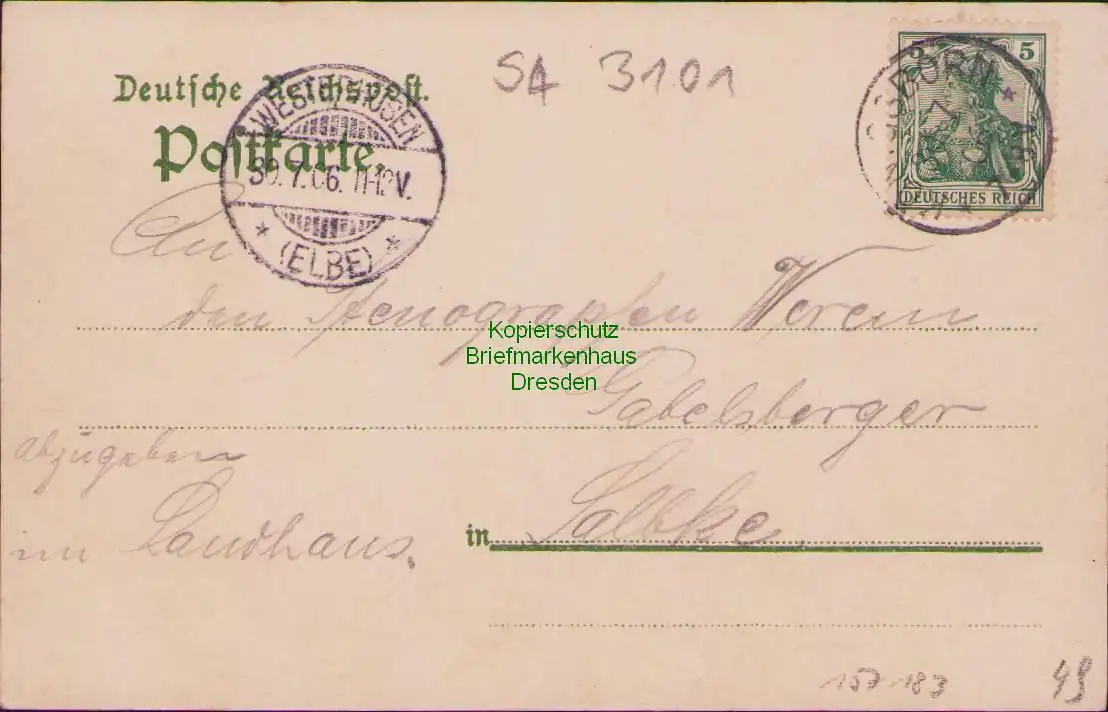 SA 3101
Deutsche Reichspost.
Postkarte.
WESTERHÜSEN
30.7.06. 11-12V.
(ELBE)
5 5
DEUTSCHES REICH
An
den Stenographen Verein
Gabelsberger
abzugeben
im Landhaus.
in Salbke
Kopierschutz
Briefmarkenhaus
Dresden
157 183
49